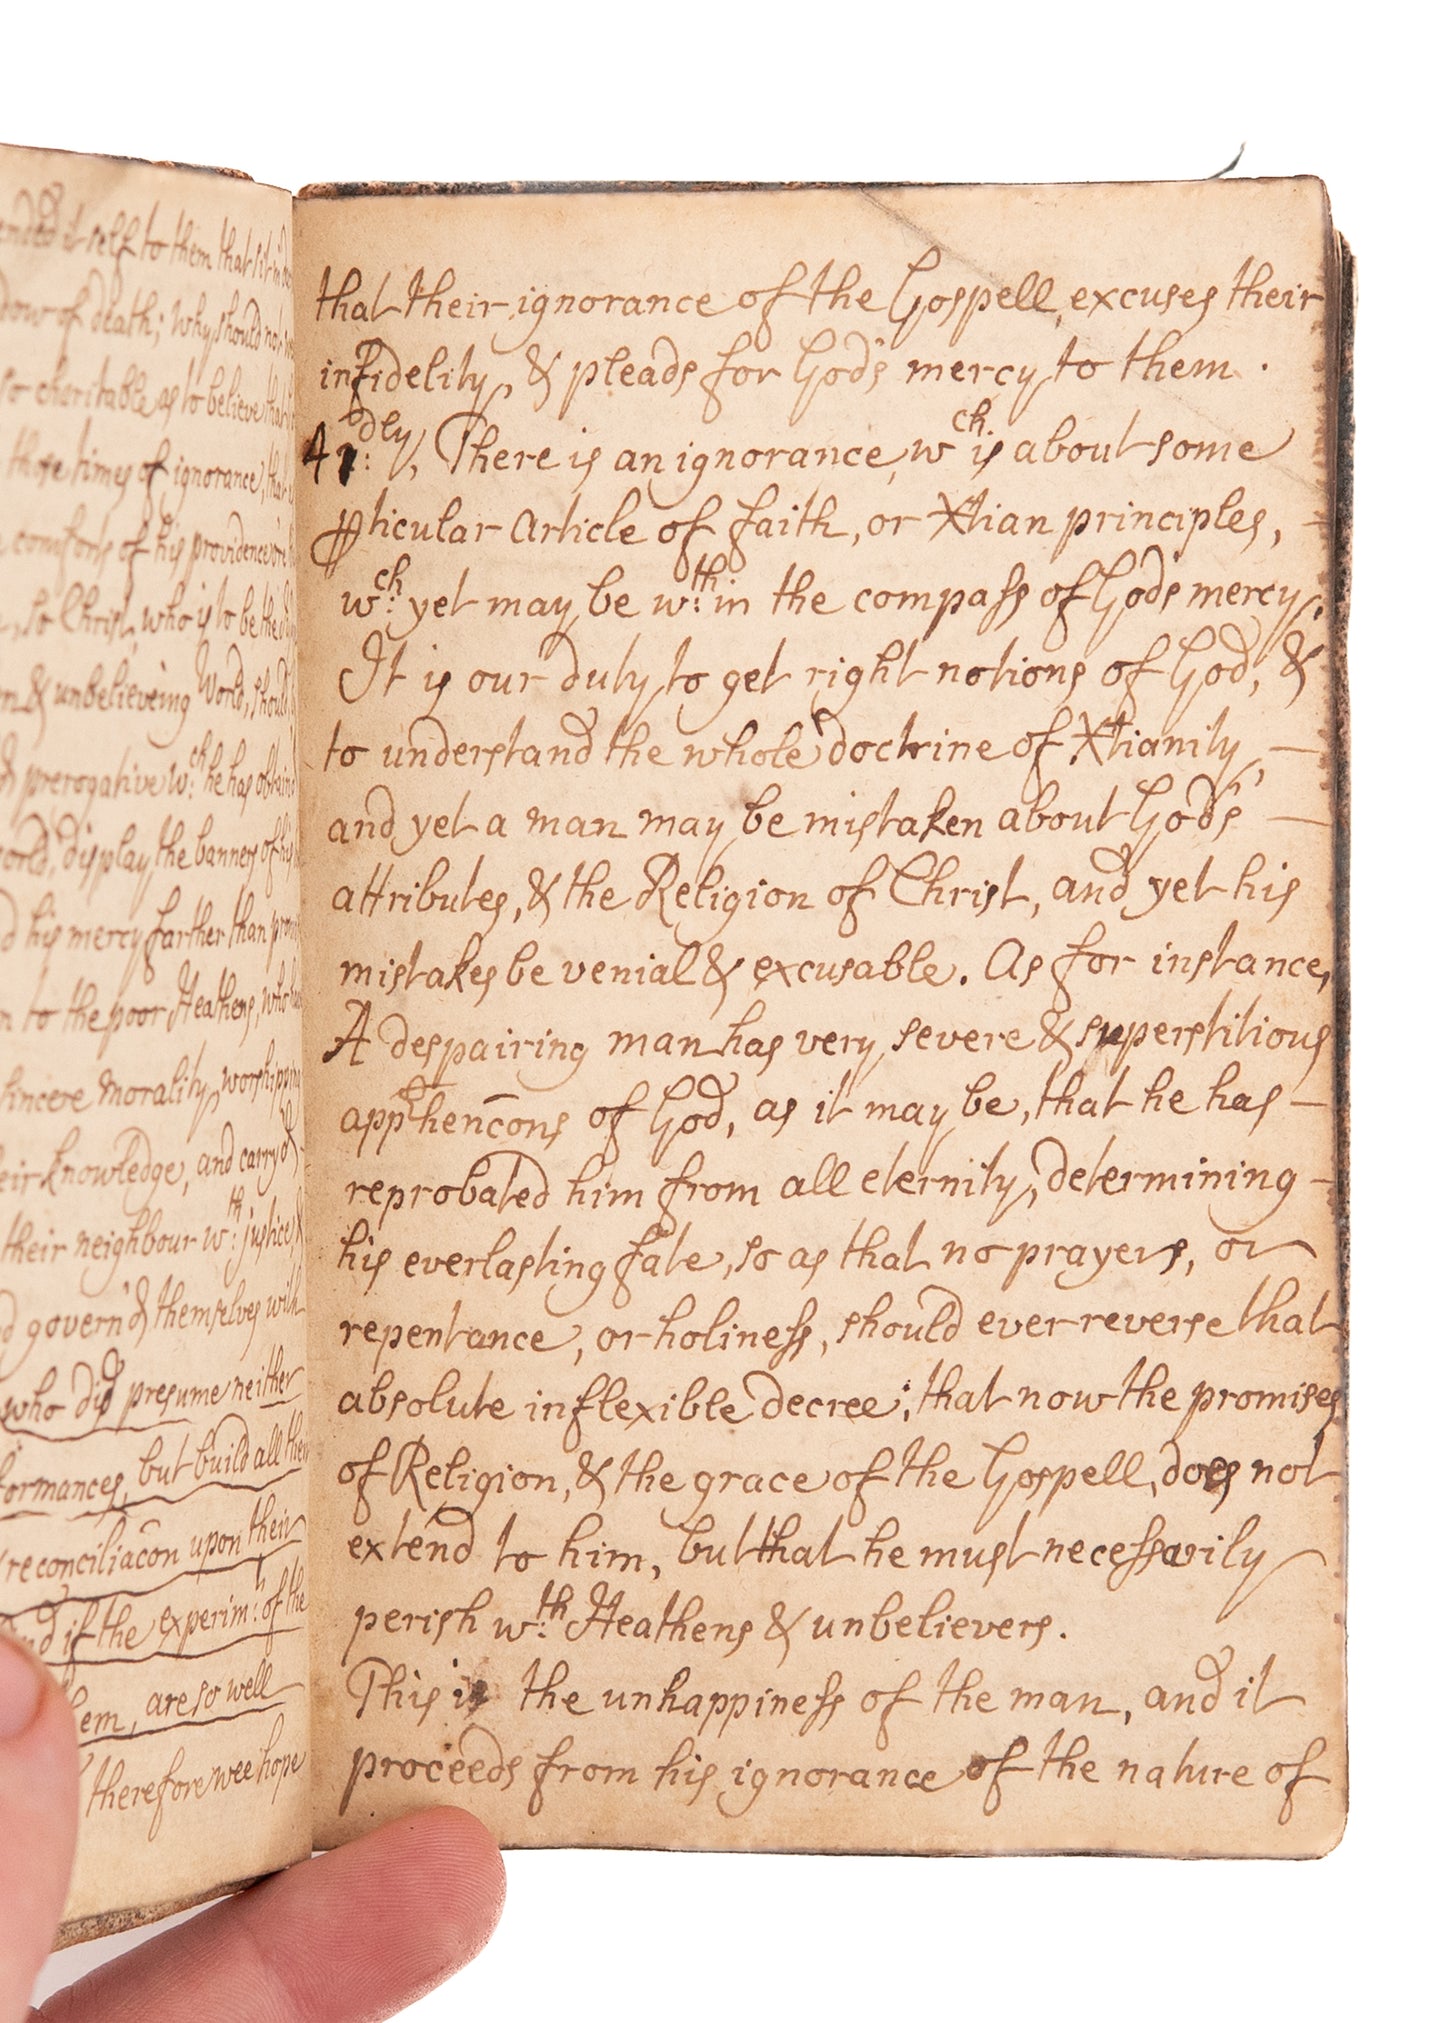 ended it self to them that sit in
dow of death; why should not
so charitable as to believe that
those times of ignorance, that
comforts of his providence
, so Christ, who is to be the
& unbelieveing World, should
prerogative wch: he has obtain
world, display the banners of his
d his mercy farther than
to the poor Heathens, who
sincere morality, worshipping
their knowledge, and carry'd
their neighbour wth: justice, &
d govern'd themselves with
who did presume neither
formances, but build all their
reconciliacon upon their
And if the experimt: of the
them, are so well
therefore wee hope
that their ignorance of the Gospell, excuses their
infidelity, & pleads for God's mercy to them.
4:dly, There is an ignorance, wch: is about some
ꝑticular Article of faith, or Xtian principles, -
wch: yet may be wth:in the compass of God's mercy.
It is our duty to get right notions of God, &
to understand the whole doctrine of Xtianity, —
and yet a man may be mistaken about God's —
attributes, & the Religion of Christ, and yet his
mistakes be venial & excusable. As for instance,
A despairing man has very severe & superstitious
apprhencōns of God, as it may be, that he has —
reprobated him from all eternity, determining -
his everlasting fate, so as that no prayers, or
repentance, or holiness, should ever reverse that
absolute inflexible decree; that now the promises
of Religion, & the grace of the Gospell, does not
extend to him, but that he must necessarily
perish wth: Heathens & unbelievers.
This is the unhappiness of the man, and it
proceeds from his ignorance of the nature of